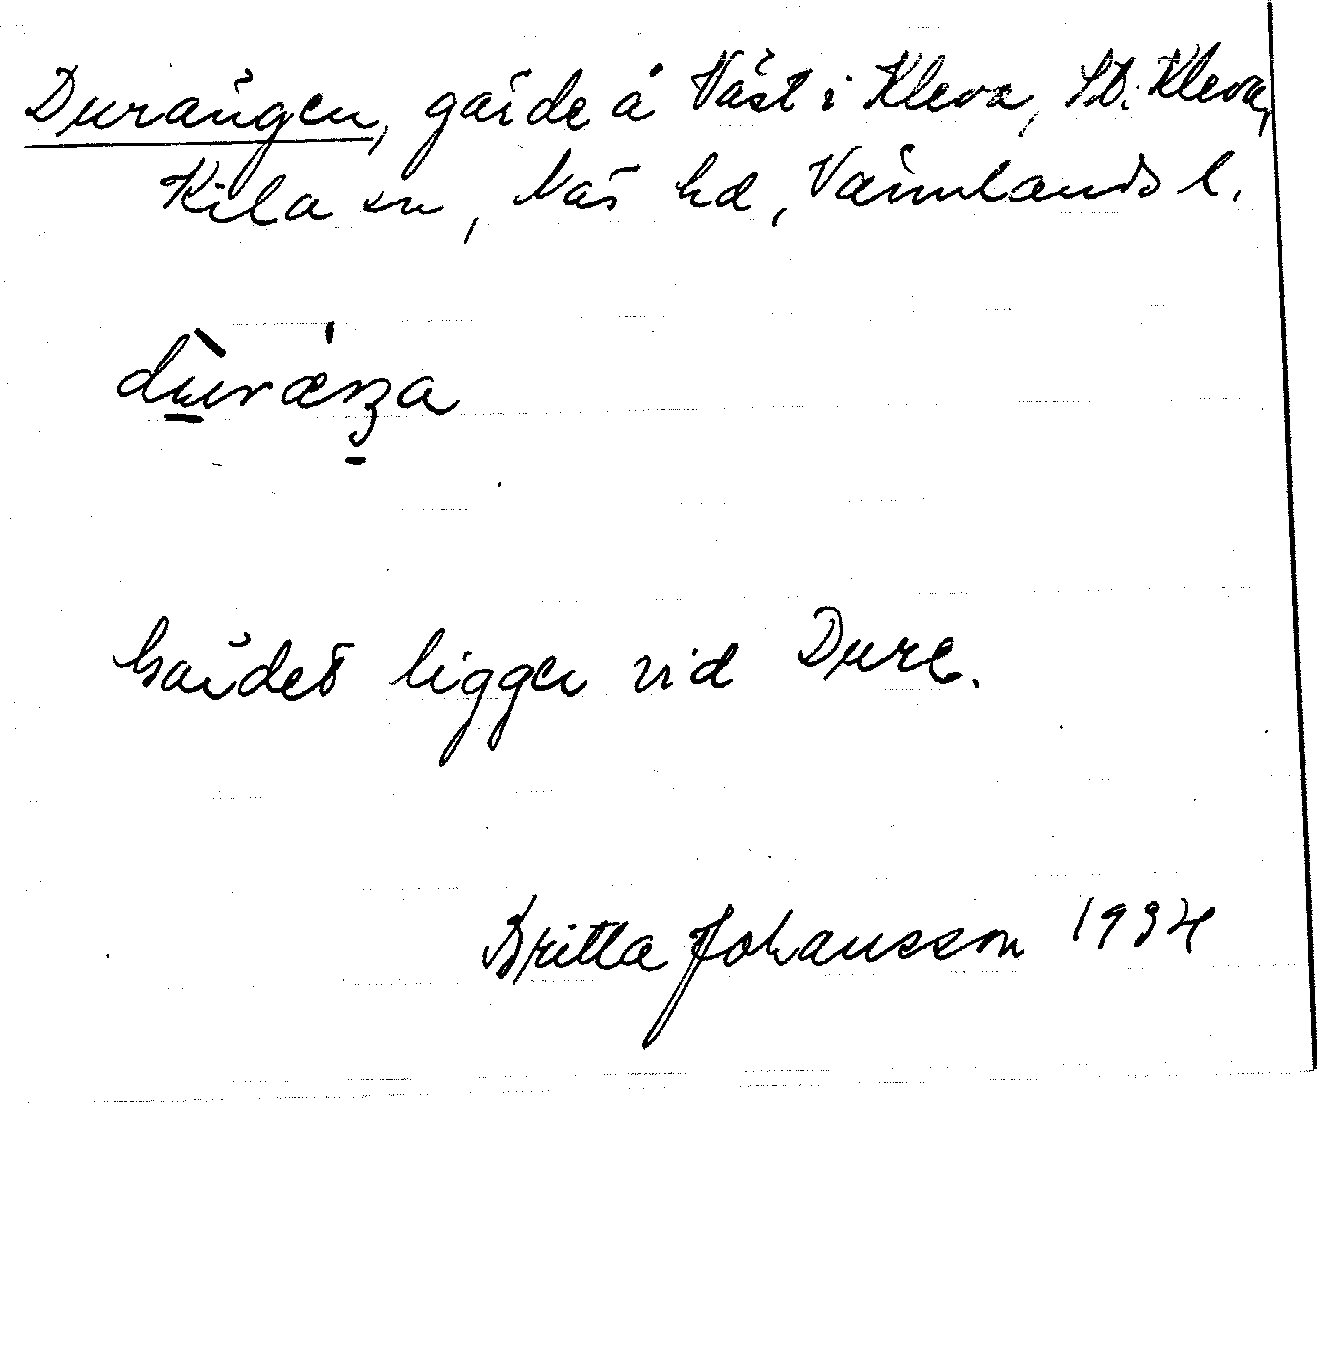 Durängen, gärde å Väst i Kleva, St. Kleva,
Kila sn, Näs hd, Värmlands l.
dùræŋa
Gärdet ligger vid Dure.
Britta Johansson 1934